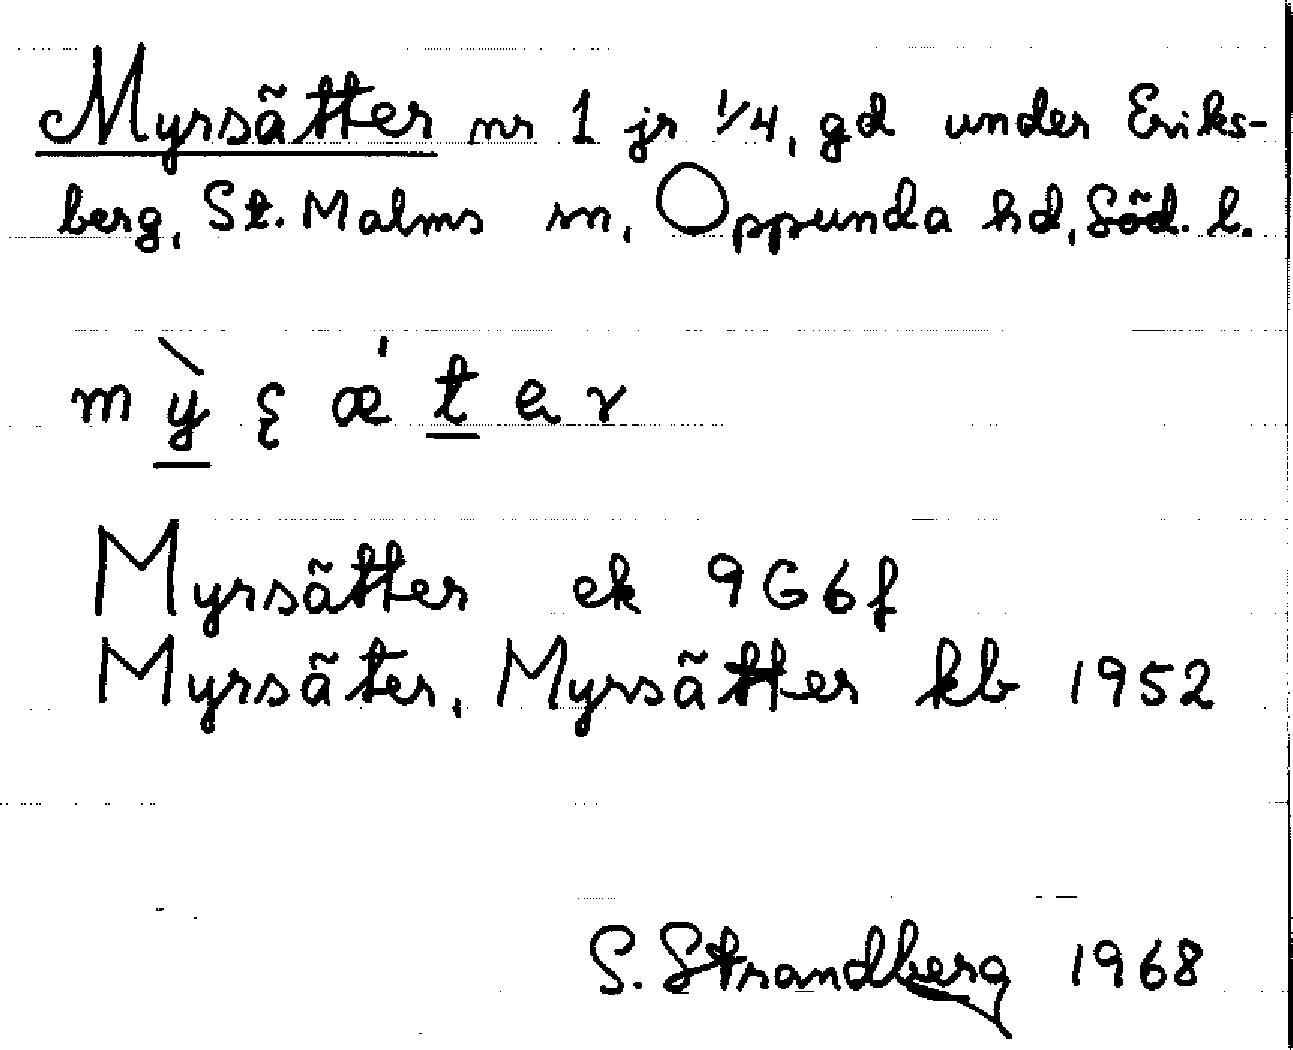 Myrsätter nr 1 jr 1/4, gd under Eriks-
berg, St. Malms sn, Oppunda hd, Söd. l.
mỳʂæ´ter
Myrsätter ek 9G6f
Myrsäter, Myrsätter kb 1952
S. Strandberg 1968